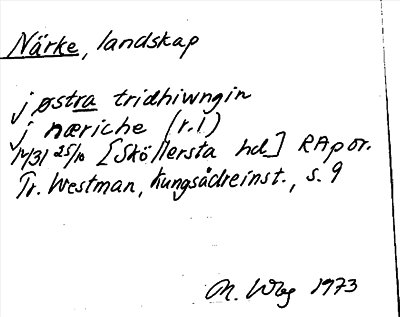 Närke, landskap
j østra tridhiwngin
j næriche (r. 1)
1431 25/10 [Sköllersta hd.] RAp or.
Tr. Westman, Kungsådreinst., s. 9
M. Wbg 1973